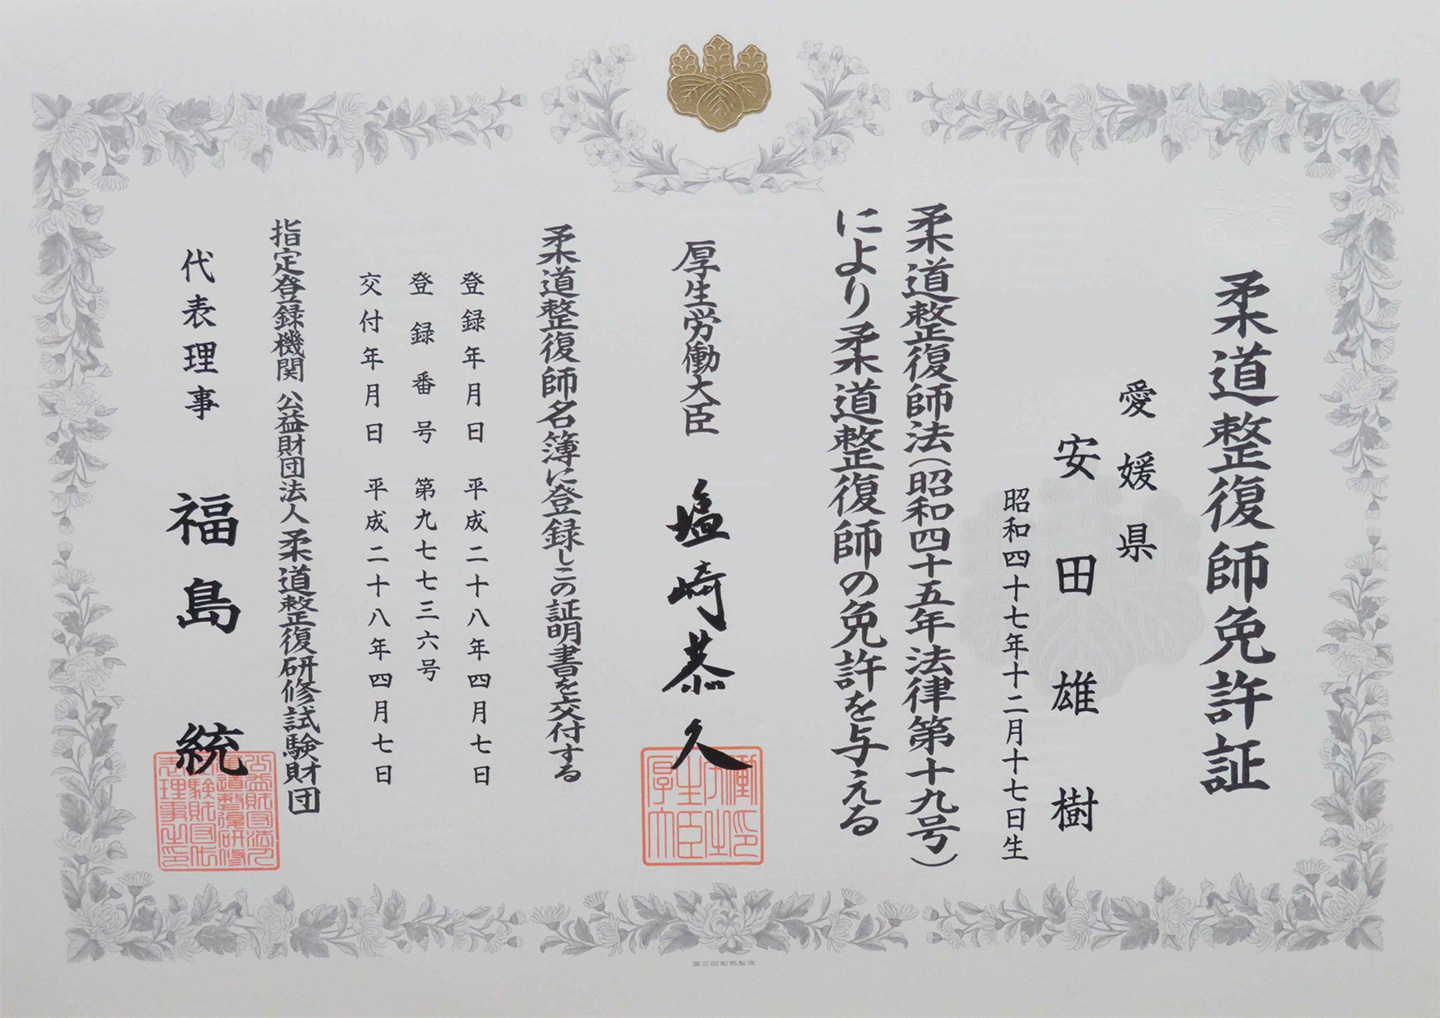 柔道整復師免許証
愛媛県
安田雄樹
昭和四十七年十二月十七日生
柔道整復師法(昭和四十五年法律第十九号)
により柔道整復師の免許を与える
厚生労働大臣 塩崎恭久
柔道整復師名簿に登録しこの証明書を交付する
登録年月日 平成二十八年四月七日
登録番号 第九七七三六号
交付年月日 平成二十八年四月七日
指定登録機関 公益財団法人柔道整復研修試験財団
代表理事 福島統